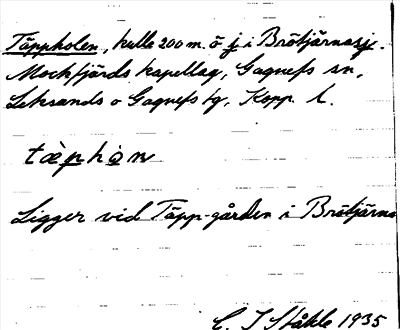 Täppholen, kulle 200 m. ö j i Brötjärnasj.
Mockfjärds kapellag, Gagnefs sn,
Leksands o Gagnefs tg, Kopp. l.
tæ̀phòn
Ligger vid Täpp-gården i Brötjärna
C. I Ståhle 1935